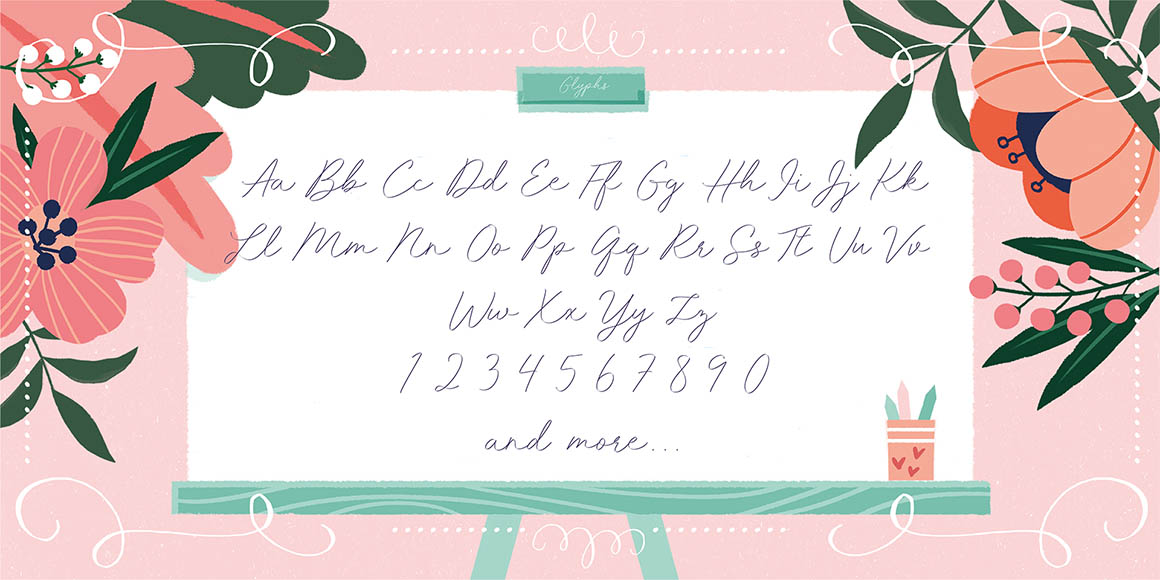 Glyphs
Aa Bb Cc Dd Ee Ff Gg Hh Ii Jj Kk
Ll Mm Nn Oo Pp Qq Rr Ss Tt Uu Vv
Ww Xx Yy Zz
1 2 3 4 5 6 7 8 9 0
and more...